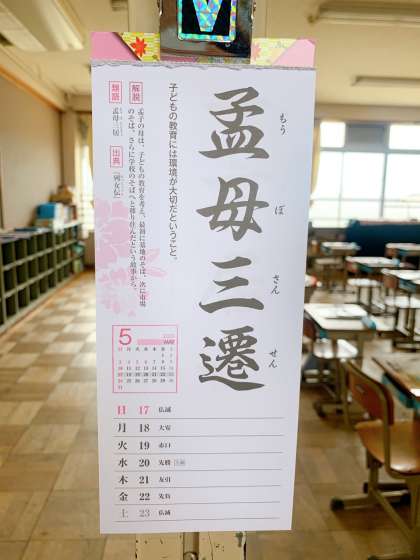 孟母三遷
もう ぼ さん せん
子どもの教育には環境が大切だということ。
解説
孟子の母は、子どもの教育を考え、最初に墓地のそば、次に市場
のそば、さらに学校のそばへと移り住んだという故事から。
類語
孟母三居
出典
『列女伝』
5
MAY
日 17 仏滅
月 18 大安
火 19 赤口
水 20 先勝
木 21 友引
金 22 先負
土 23 仏滅